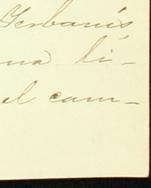 Gerbanís
na li-
el cam-